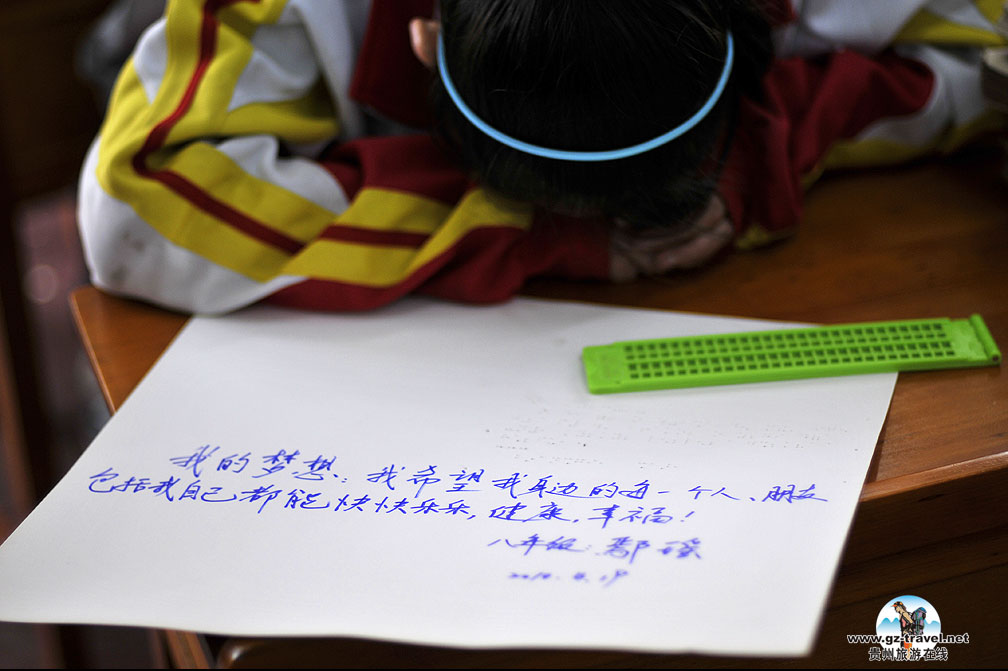 我的梦想：我希望我身边的每一个人、朋友
包括我自己都能快快乐乐，健康，幸福！
八年级：鄢瑶
2010.4.19
www.gz-travel.net
贵州旅游在线